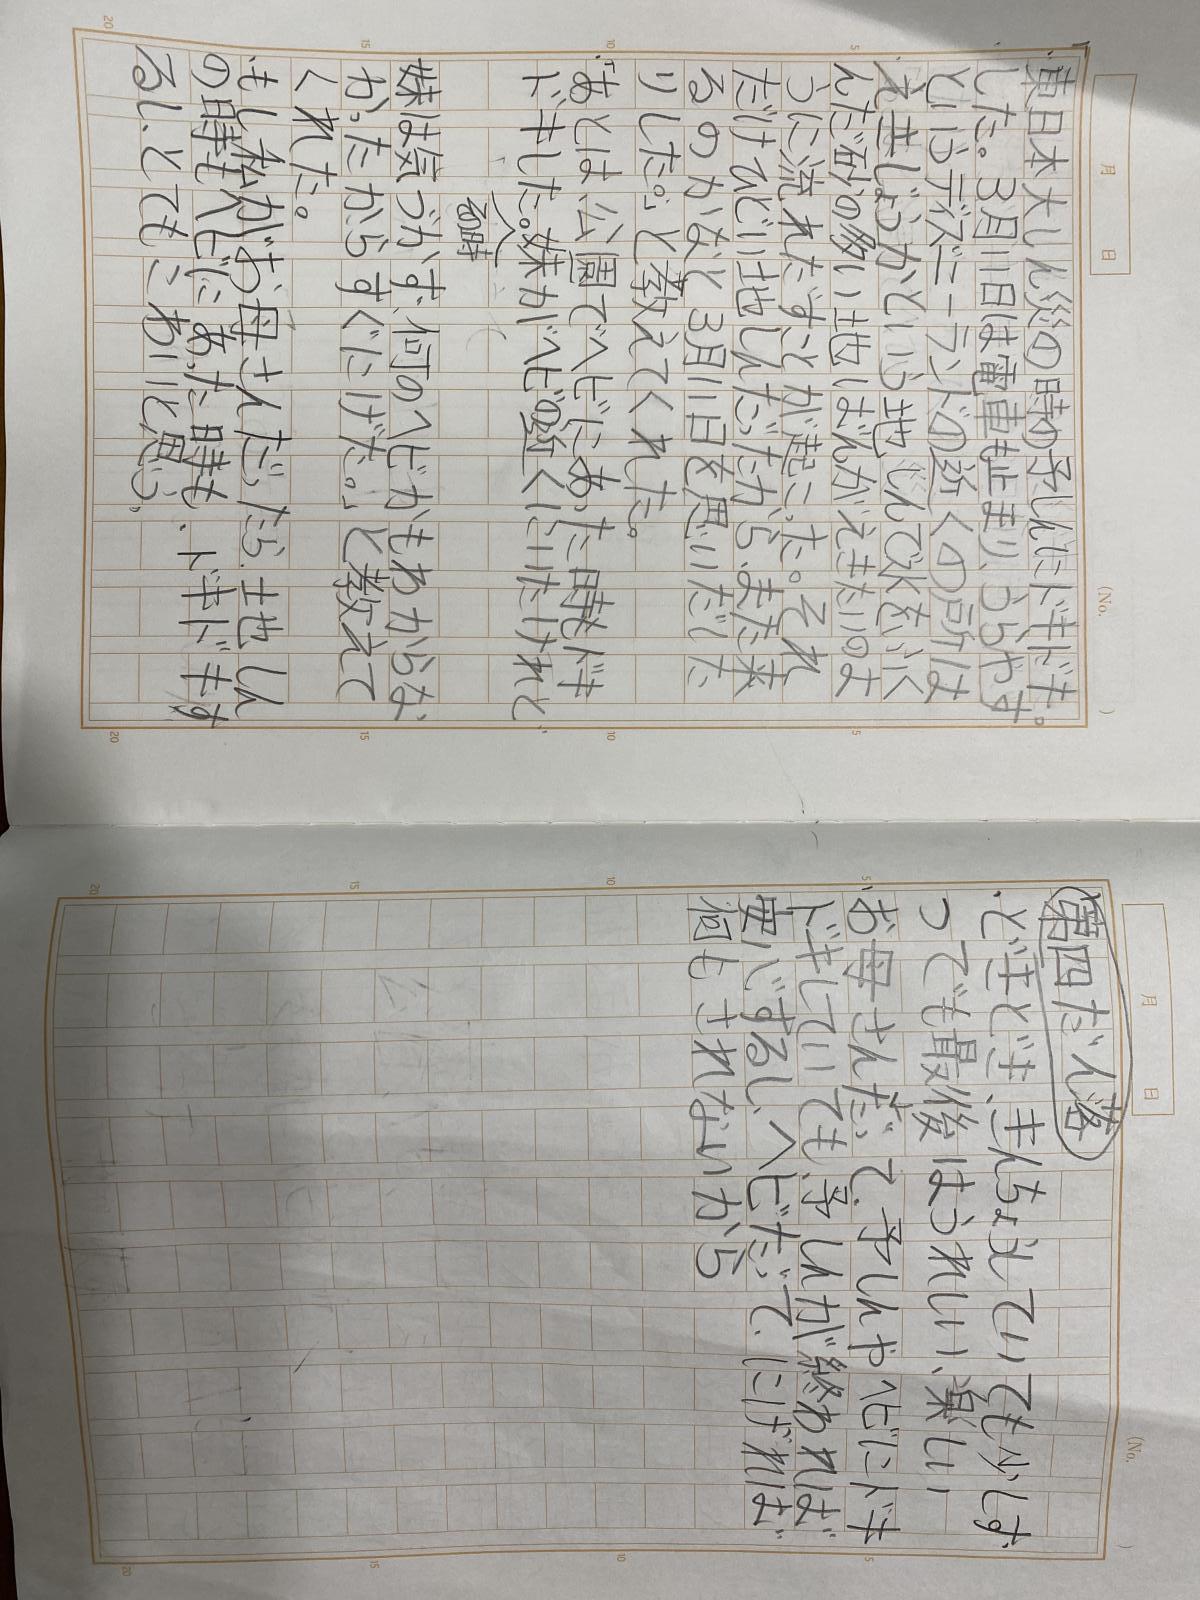 月 日
(No. )
「東日本大しん災の時の予しんにドキドキ。
した。3月11日は電車も止まり、うらやす
というディズニーランドの近くの所は
えき上じょうかという地しんで水をふく
んだ砂の多い地ばんがえきたいのよ
うに流れだすことが起こった。それ
だけひどい地しんだったから、また来
るのかなと3月11日を思いだした
りした。」と教えてくれた。
「あとは公園でヘビにあった時もドキ
ドキした。妹がヘビの近くにいたけれど、
る時
妹は気づかず、何のヘビかもわからな
かったからすぐにげた。」と教えて
くれた。
もし私がお母さんだったら、土地しん
の時もヘビにあった時も、ドキドキす
るし、とてもこわいと思う。
5
10
15
20
月 日
(No. )
第四だん落
、どきどき、きんちょうしていても少しず
つでも最後はうれしい、楽しい
お母さんだって、予しんやヘビにドキ
ドキしていても、予しんが終われば
安心するし、ヘビだって、にげれば
何もされないから
5
10
15
20